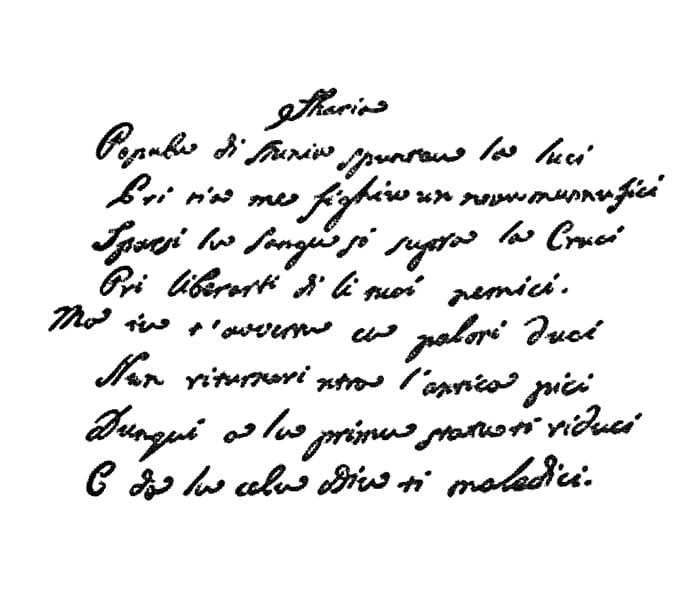 Maria
Populu di spuntau la luci
Pri tia me fighiu un novu munnu fici
Sparsi lu sangu sò supra la Cruci
Pri liberarti di li nemici.
Ma iu t'avvertu cu palori duci
Nun riturnari ntra l'antica pici
Dunqui a lu primu statu ti riduci
E da lu celu Diu ti maledici.